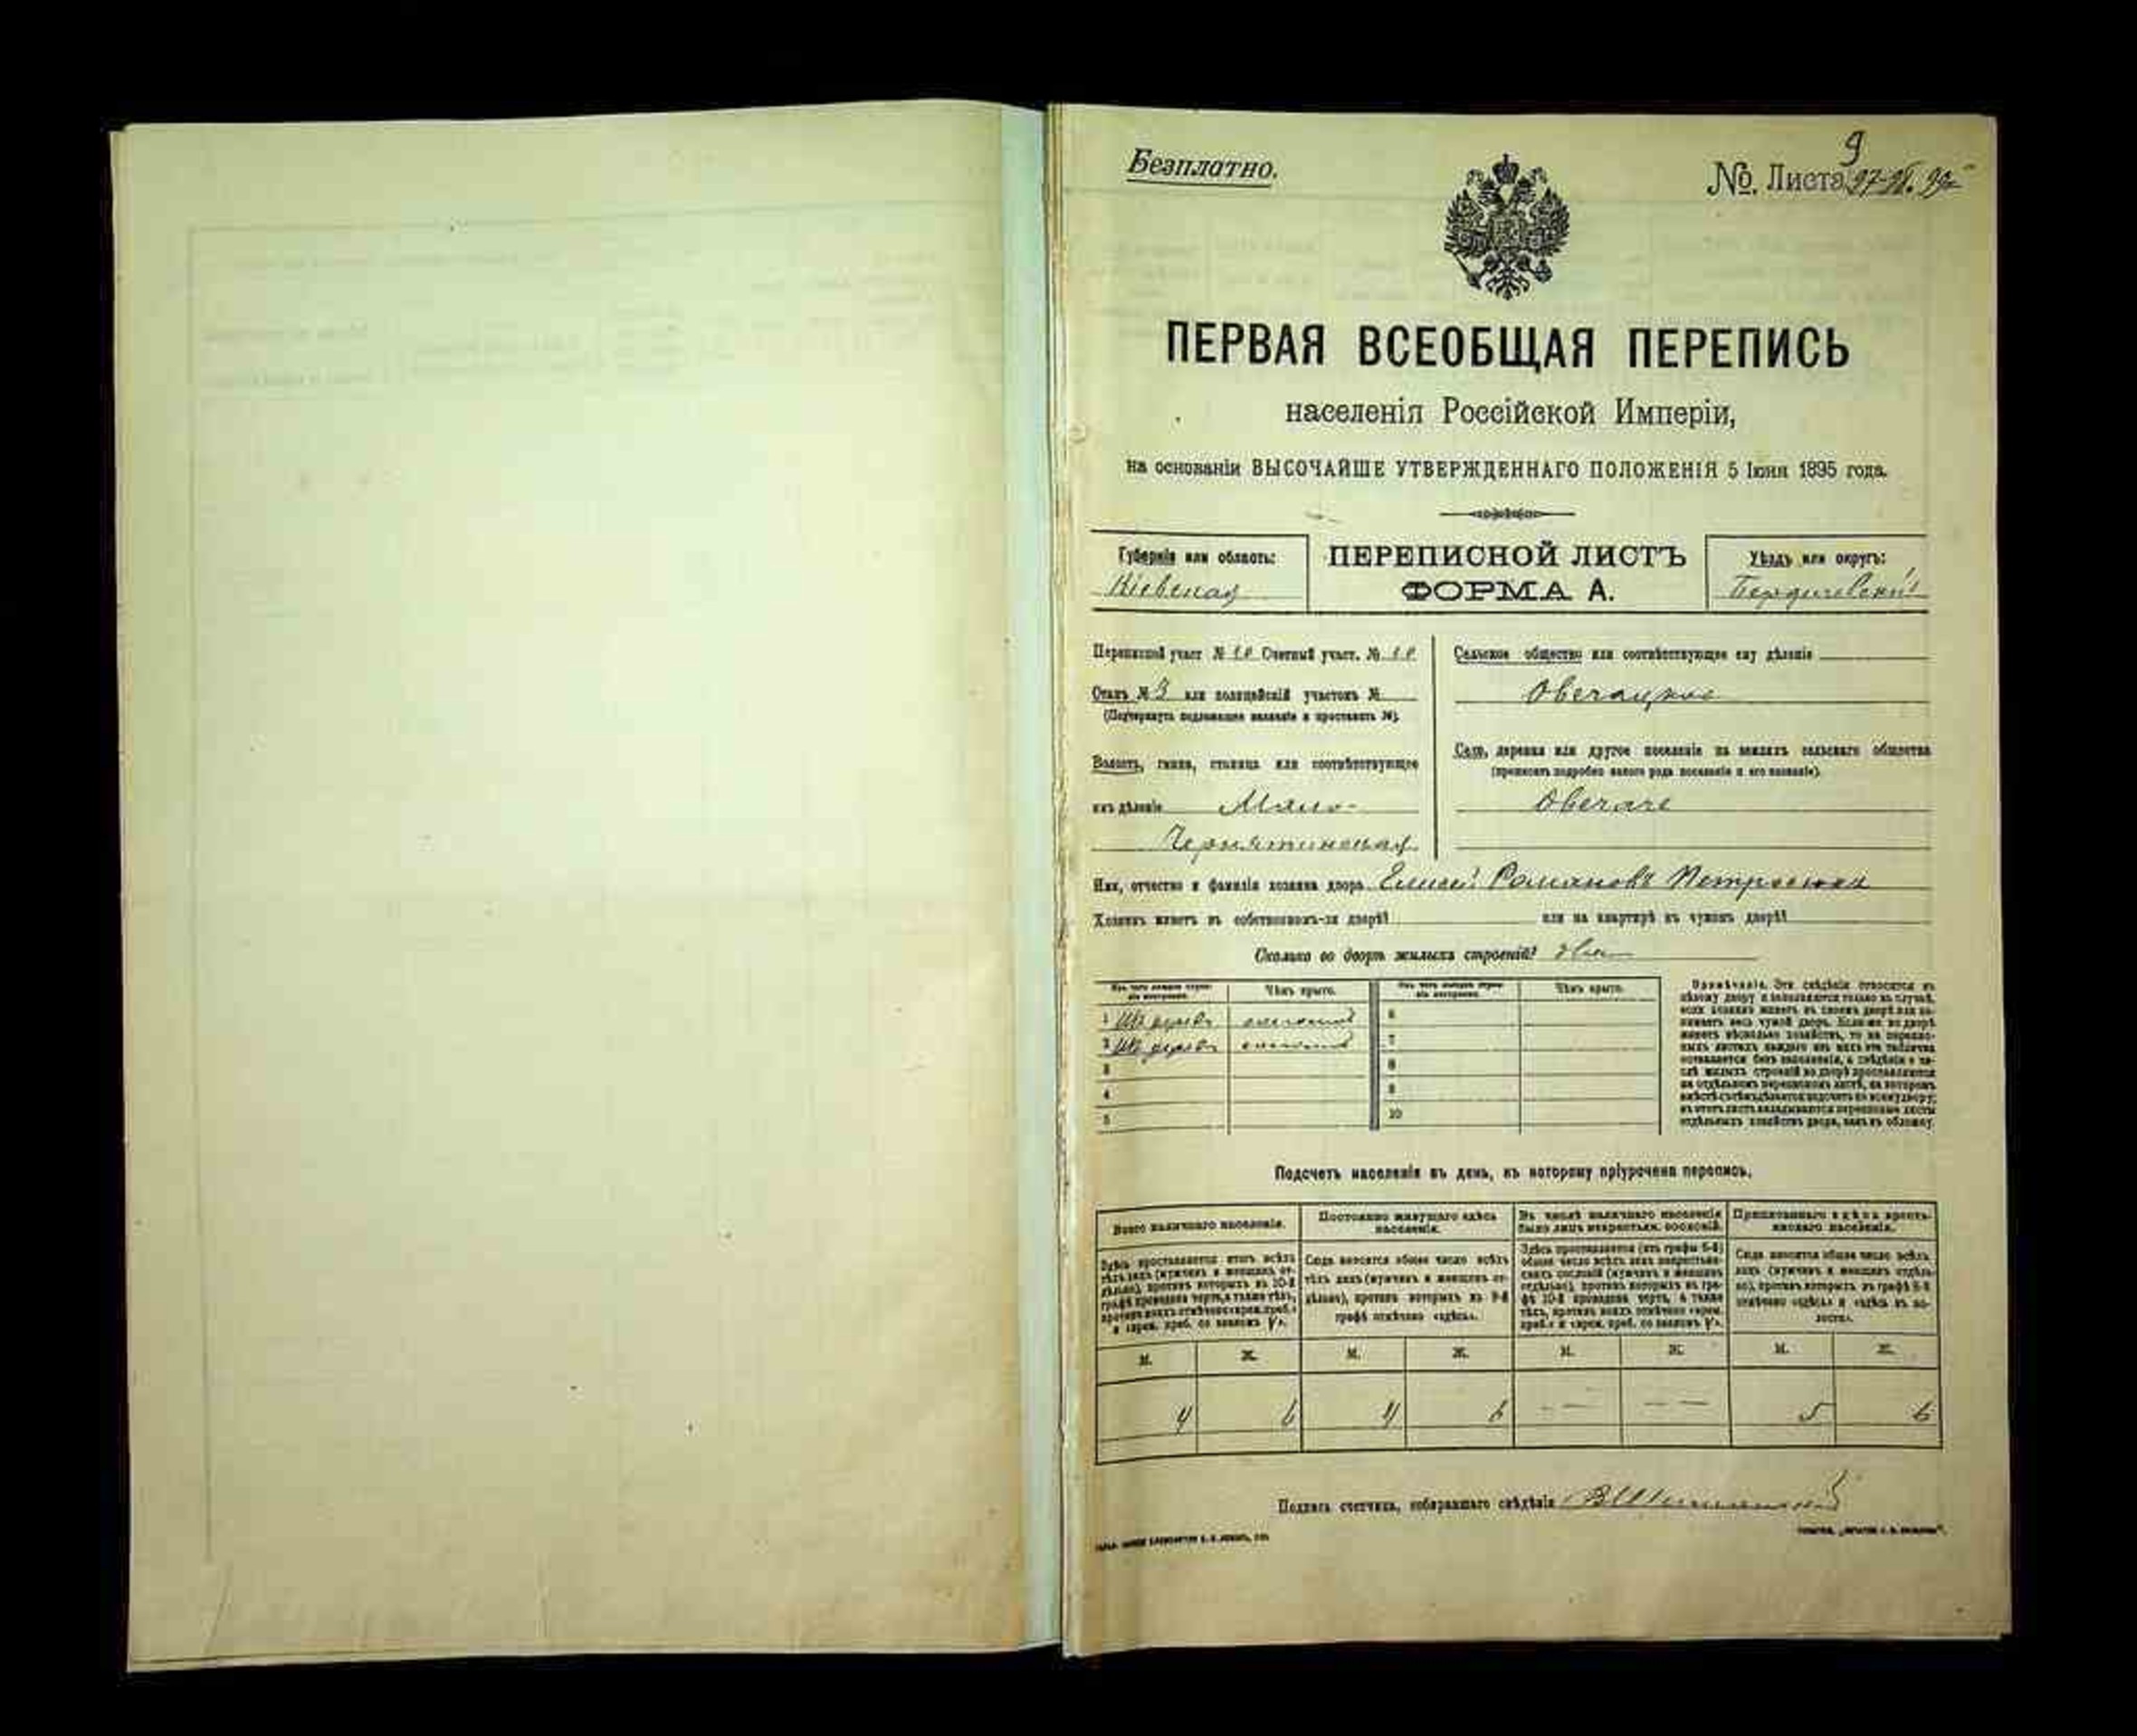 Безплатно.
9
№. Листа 97-98. 99
ПЕРВАЯ ВСЕОБЩАЯ ПЕРЕПИСЬ
населенія Россійской Имперіи,
на основаніи ВЫСОЧАЙШЕ УТВЕРЖДЕННАГО ПОЛОЖЕНІЯ 5 Іюня 1895 года.
Губернія или область:
Кіевская
ПЕРЕПИСНОЙ ЛИСТЪ
ФОРМА А.
Уѣздъ или округъ:
Бердичевскій
Переписной участ № 10 Счетный участ. № 10
Станъ № 3 или полицейскій участокъ №
(Подчеркнуть подлежащее названіе и проставить №).
Волость, гмина, станица или соотвѣтствующее
имъ дѣленіе Мало-
Чернятинская
Сельское общество или соотвѣтствующее ему дѣленіе
Овечацкое
Село, деревня или другое поселеніе на земляхъ сельскаго общества
(прописать подробно какого рода поселеніе и его названіе).
Овечаче
Имя, отчество и фамилія хозяина двора Елисей Романовъ Петросюкъ
Хозяинъ живетъ въ собственномъ-ли дворѣ?
или на квартирѣ въ чужомъ дворѣ?
Сколько во дворѣ жилыхъ строеній? два
Изъ чего каждое строеніе построено.
Чѣмъ крыто.
Изъ чего каждое строеніе построено.
Чѣмъ крыто.
1 Изъ дерева соломой 6
2 Изъ дерева соломой 7
3 8
4 9
5 10
Примѣчаніе. Эти свѣдѣнія относятся къ
цѣлому двору и заполняются только въ случаѣ,
если хозяинъ живетъ въ своемъ дворѣ или за-
нимаетъ весь чужой дворъ. Если-же во дворѣ
имѣетъ нѣсколько хозяйствъ, то на перепис-
ныхъ листахъ каждаго изъ нихъ эта табличка
оставляется безъ заполненія, а свѣдѣнія о чи-
слѣ жилыхъ строеній во дворѣ проставляются
на отдѣльномъ переписномъ листѣ, на которомъ
вмѣстѣ съ тѣмъ дѣлается подсчетъ по всему двору;
въ этотъ листъ вкладываются переписные листы
отдѣльныхъ хозяйствъ двора, какъ въ обложку.
Подсчетъ населенія въ день, къ которому пріурочена перепись.
Всего наличнаго населенія.
Здѣсь проставляется итогъ всѣхъ
тѣхъ лицъ (мужчинъ и женщинъ от-
дѣльно), противъ которыхъ въ 10-й
графѣ проведена черта, а также тѣхъ,
противъ коихъ отмѣчено «врем. преб.»
и «врем. преб. со знакомъ V».
Постоянно живущаго здѣсь
населенія.
Сюда вносится общее число всѣхъ
тѣхъ лицъ (мужчинъ и женщинъ от-
дѣльно), противъ которыхъ въ 9-й
графѣ отмѣчено «здѣсь».
Въ числѣ наличнаго населенія
было лицъ некрестьян. сословій.
Здѣсь проставляется (изъ графы 6-й)
общее число всѣхъ лицъ некрестьян-
скихъ сословій (мужчинъ и женщинъ
отдѣльно), противъ которыхъ въ гра-
фѣ 10-й проведена черта, а также
тѣхъ, противъ коихъ отмѣчено «врем.
преб.» и «врем. преб. со знакомъ V».
Приписаннаго здѣсь кресть-
янскаго населенія.
Сюда вносится общее число всѣхъ
лицъ (мужчинъ и женщинъ отдѣль-
но), противъ которыхъ въ графѣ 8-й
отмѣчено «здѣсь» и «здѣсь въ во-
лости».
М. Ж. М. Ж. М. Ж. М. Ж.
4 6 4 6 — — — — 5 6
Подпись счетчика, собиравшаго свѣдѣнія